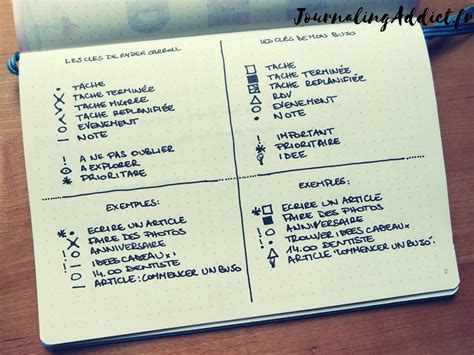 JournalingAddict.fr
LES CLES DE RYDER CARROLL
TACHE
TACHE TERMINÉE
TACHE MIGREE
TACHE REPLANIFIÉE
EVENEMENT
NOTE
A NE PAS OUBLIER
A EXPLORER
PRIORITAIRE
EXEMPLES:
ECRIRE UN ARTICLE
FAIRE DES PHOTOS
ANNIVERSAIRE
IDEES CADEAUX
14.00 DENTISTE
ARTICLE: COMMENCER UN BUJO
LES CLÉS DE MON BUJO
TACHE
TACHE TERMINÉE
TACHE REPLANIFIÉE
RDV
EVENEMENT
NOTE
IMPORTANT
PRIORITAIRE
IDEE
EXEMPLES:
ECRIRE UN ARTICLE
FAIRE DES PHOTOS
ANNIVERSAIRE
TROUVER IDEES CADEAUX
14.00 DENTISTE
ARTICLE "COMMENCER UN BUJO"